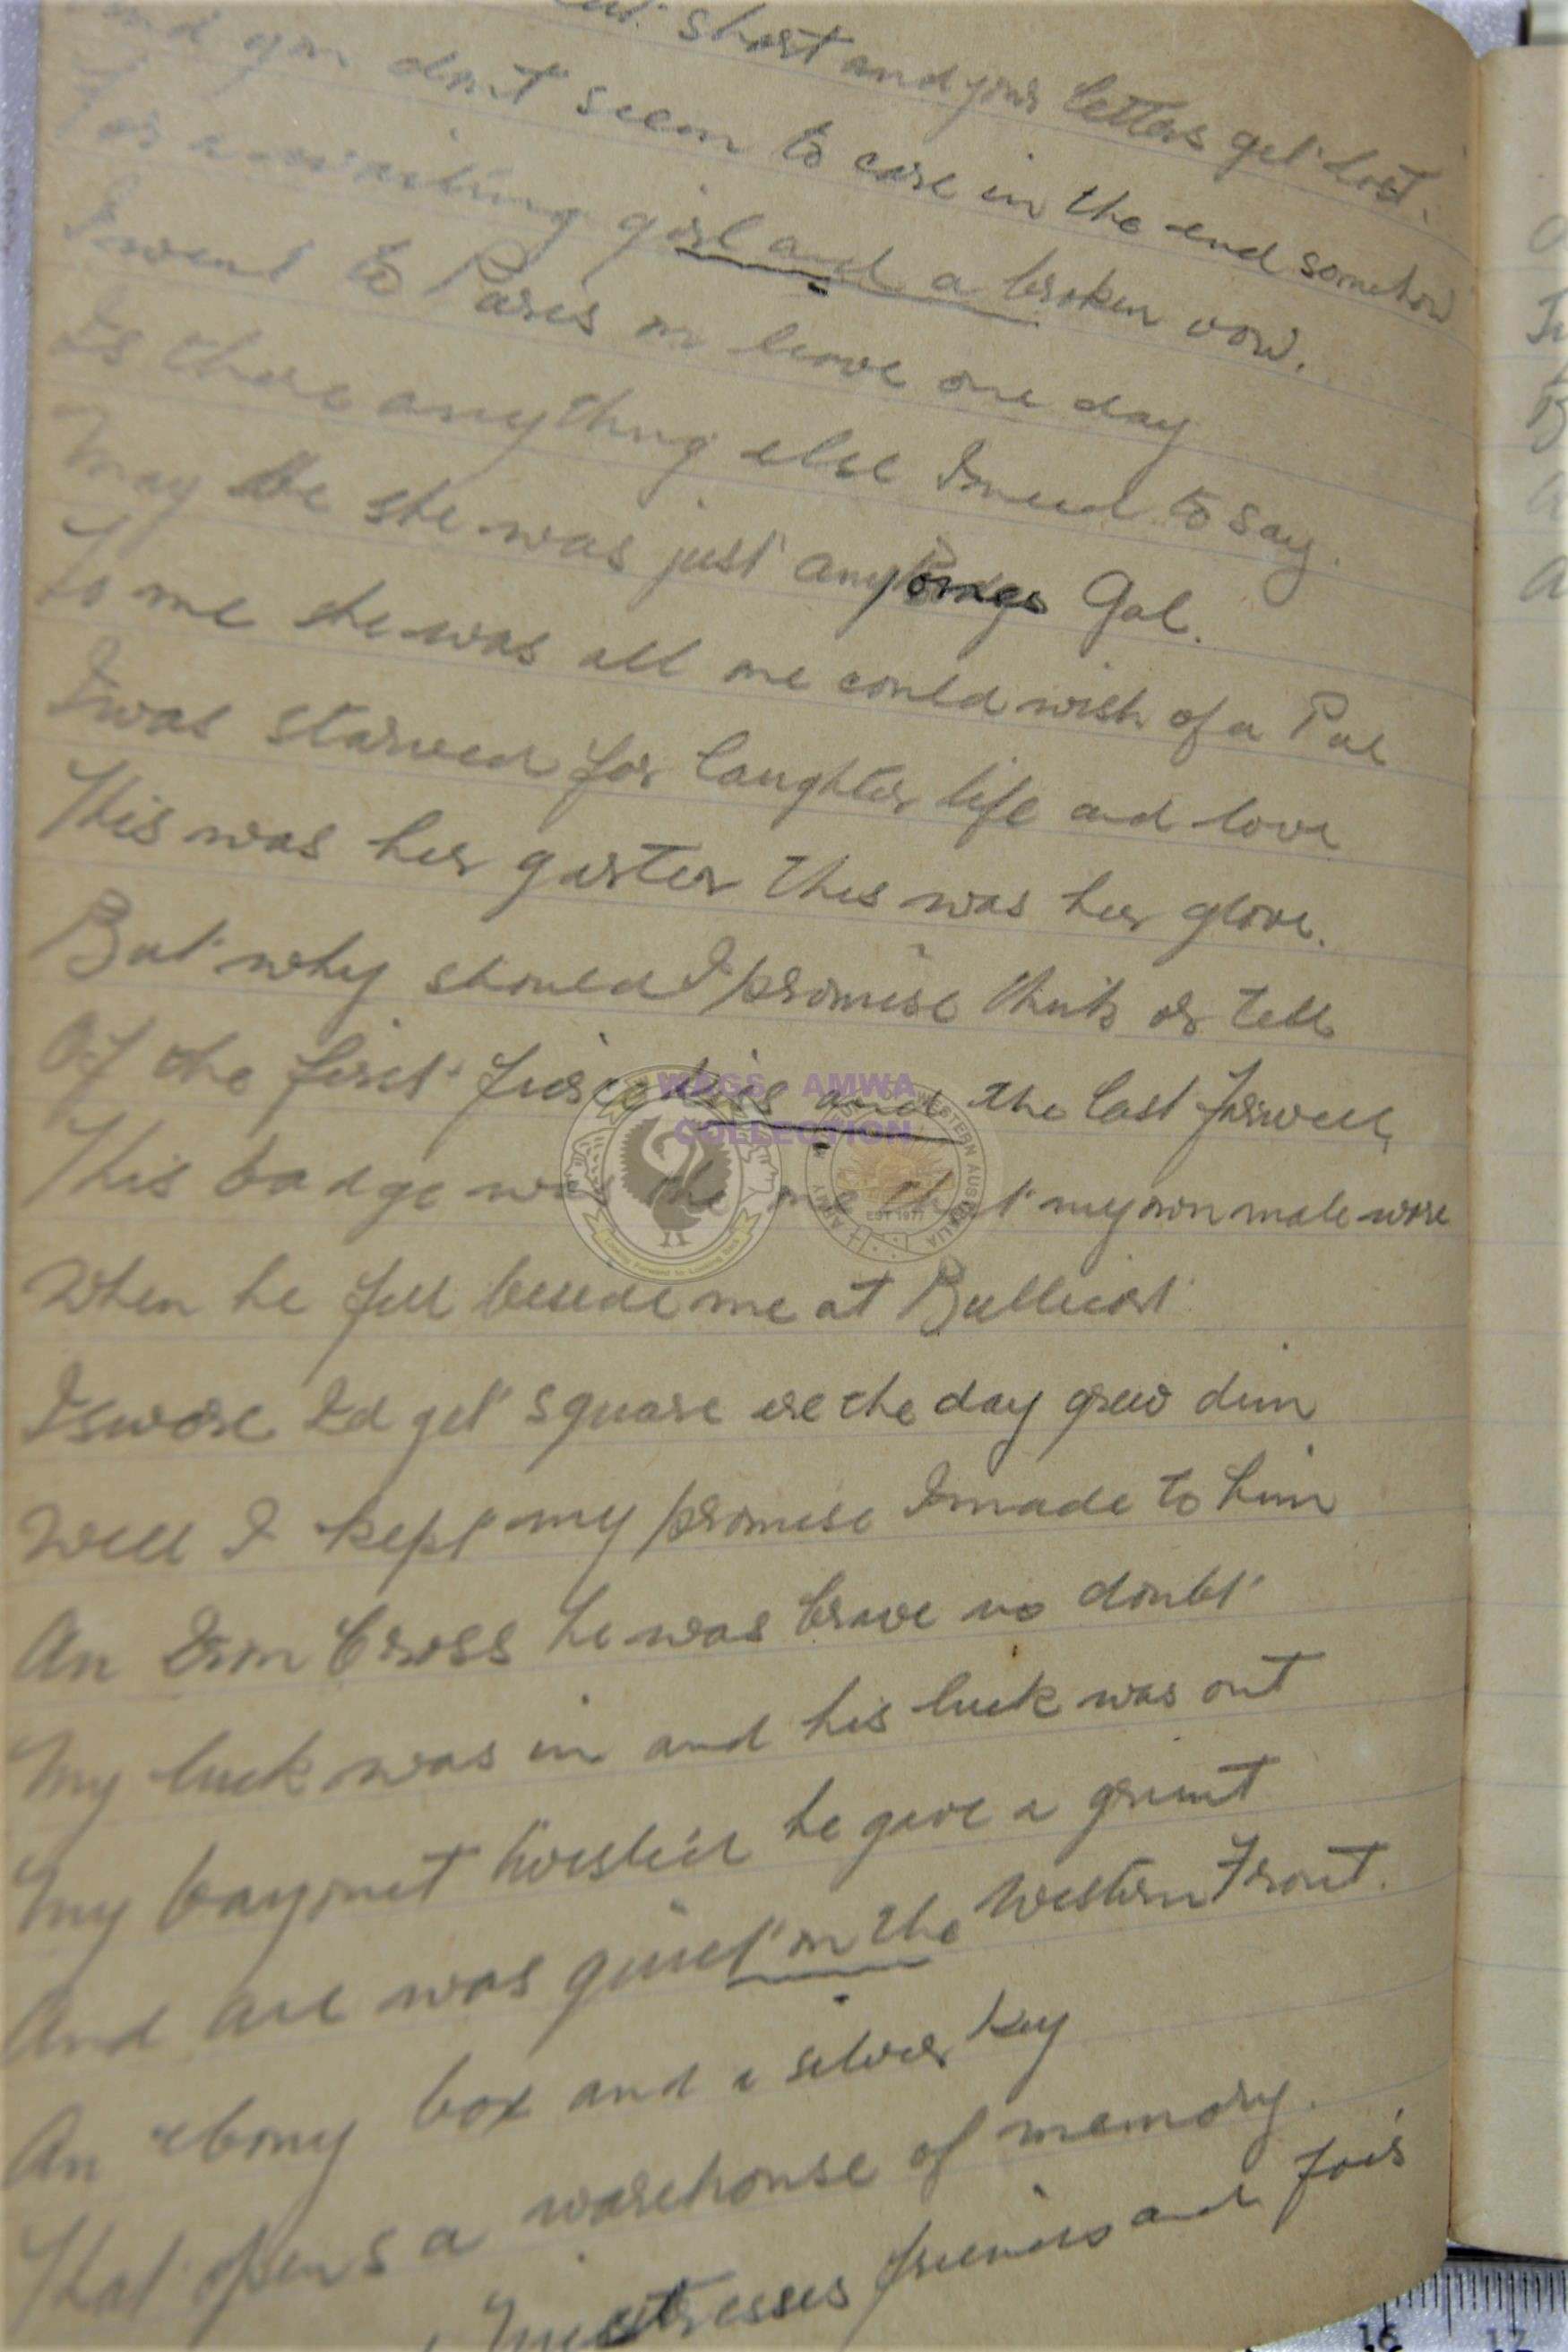 short and your letters get lost.
And you don't seem to care in the end somehow
For a waiting girl and a broken vow.
I went to Paris on leave one day
Is there anything else I need to say.
May be she was just anyones Gal.
To me she was all one could wish of a Pal
I was starved for laughter life and love
This was her garter this was her glove.
But why should I promise think or tell
Of the first fierce kiss and the last farwell
This badge was the one that my own mate wore
When he fell beside me at Bullicort
I swore I'd get square ere the day grew dim
Well I kept my promise I made to him
An Iron Cross he was brave no doubt
My luck was in and his luck was out
My bayonet he gave a grunt
And all was quiet on the Western Front.
An ebony box and a silver key
That opens a warehouse of memory.
Mistresses friends and foes
WAGS AMWA
COLLECTION
WESTERN AUSTRALIA
ARMY
EST 1977
16 17